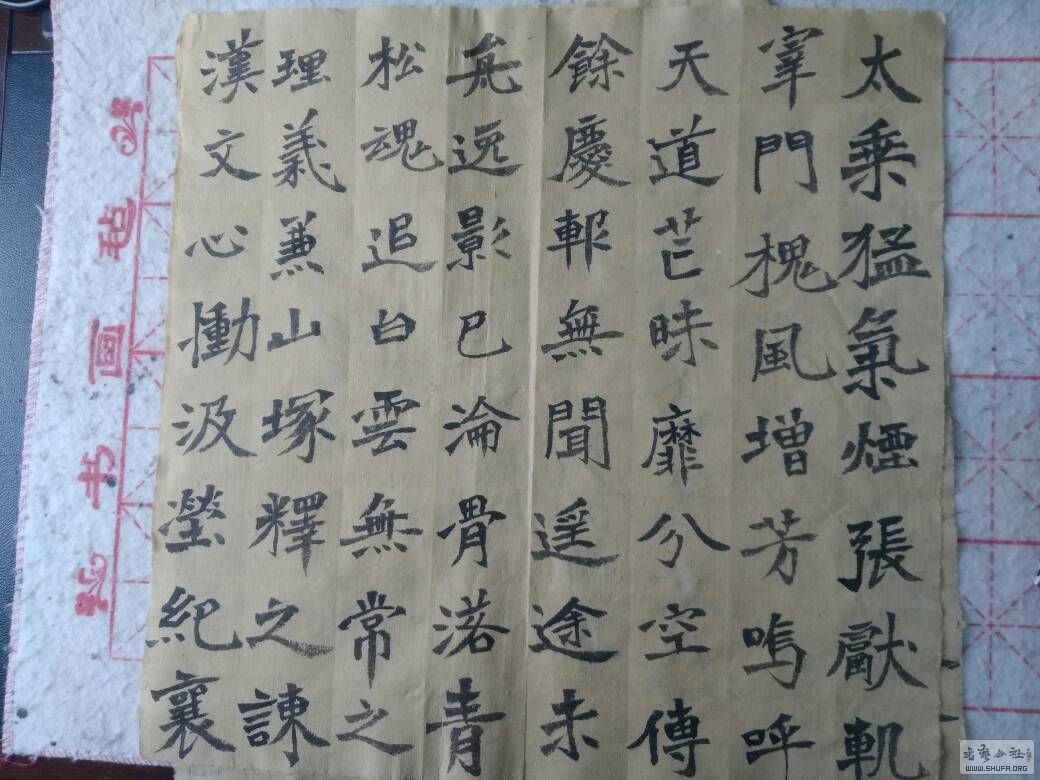 太乘猛氣煙張獻軏
宰門槐風增芳嗚呼
天道芒昧靡分空傳
餘慶報無聞遥途未
逸影已淪骨落青
松魂追白雲無常之
理義兼山塚釋之諫
漢文心慟汲瑩紀襄
毡
画
书
书艺公社
WWW.SHUFA.ORG